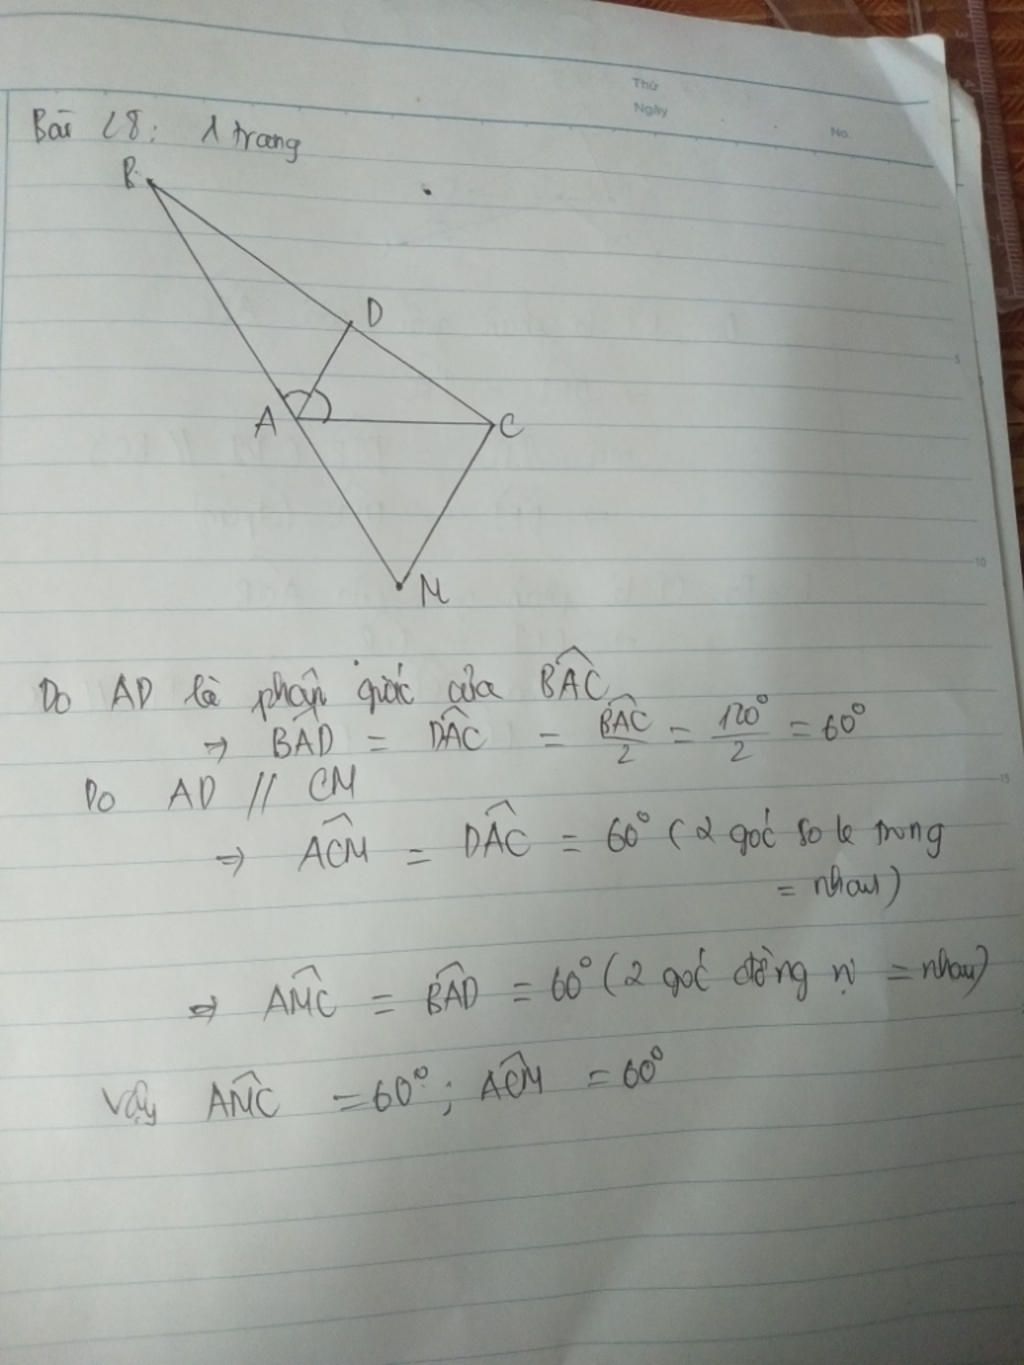 Thứ
Ngày
No.
Bài 28: 1 trang
B
D
A
C
M
5
10
15
Do AD là phân giác của BAC
⇒ BAD = DAC = BAC/2 = 120°/2 = 60°
Do AD // CM
⇒ ACM = DAC = 60° (2 góc so le trong
= nhau)
⇒ AMC = BAD = 60° (2 góc đồng vị = nhau)
Vậy AMC = 60°; ACM = 60°